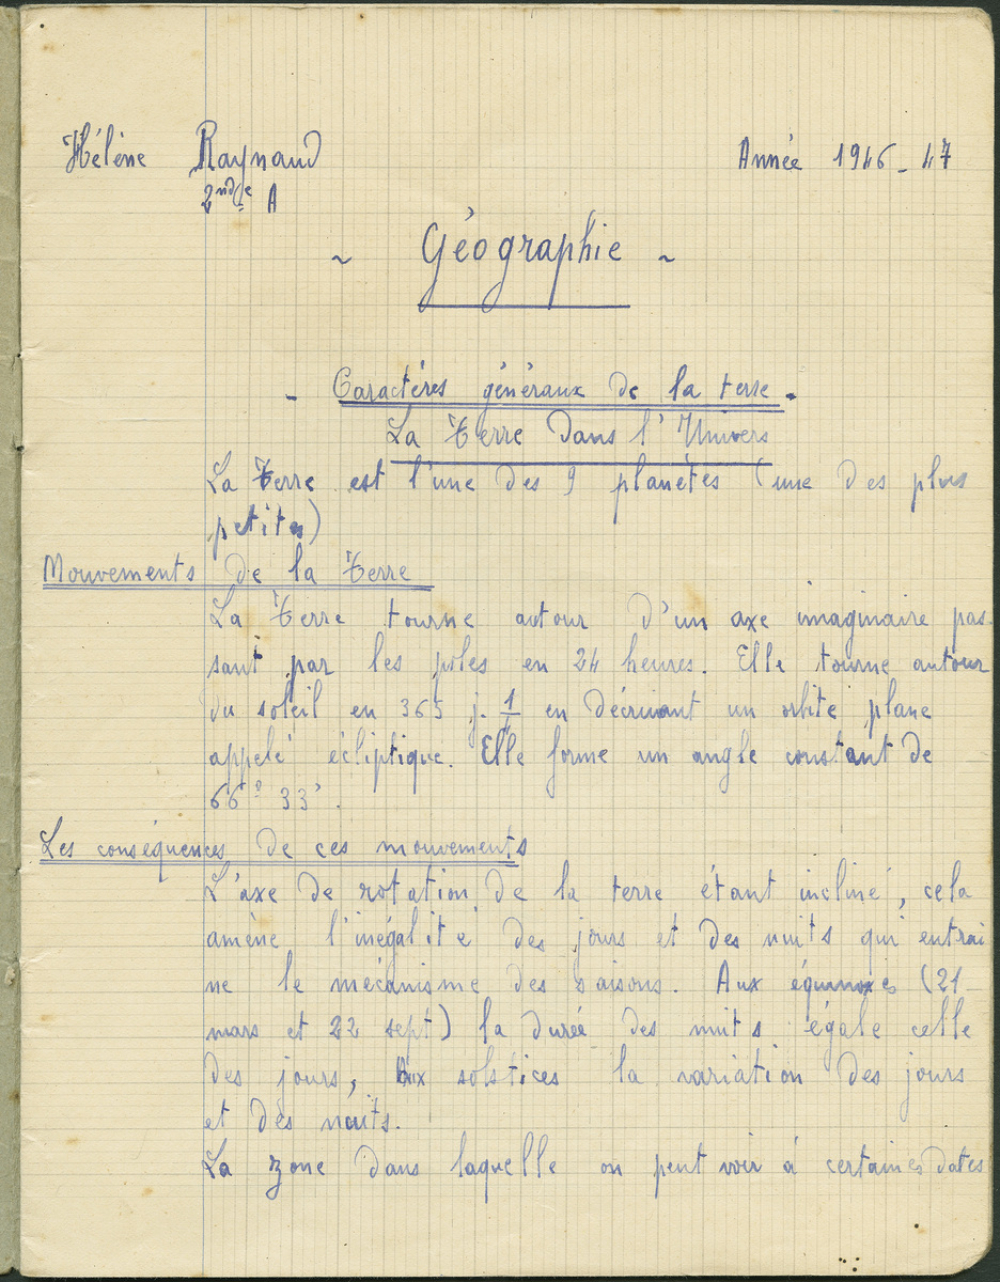 Hélène Raynaud
Année 1946-47
2nde A
~ Géographie ~
- Caractères généraux de la terre -
La Terre dans l'Univers
La Terre est l'une des 9 planètes (une des plus
petites)
Mouvements de la Terre
La Terre tourne autour d'un axe imaginaire pas-
sant par les pôles en 24 heures. Elle tourne autour
du soleil en 365 j. 1/4 en décrivant un orbite plane
appelé écliptique. Elle forme un angle constant de
66° 33'.
Les conséquences de ces mouvements
L'axe de rotation de la terre étant incliné, cela
amène l'inégalité des jours et des nuits qui entrai
ne le mécanisme des saisons. Aux équinoxes (21
mars et 22 sept) la durée des nuits égale celle
des jours, Aux solstices la variation des jours
et des nuits.
La zone dans laquelle on peut voir à certaines dates